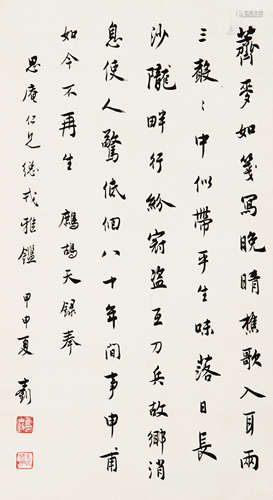 薺麥如箋寫晚晴樵歌入耳兩
三聲〻中似帶平生味落日長
沙隴畔行紛窃盜互刀兵故鄉消
息使人驚低佪八十年間事申甫
如今不再生 鷓鴣天錄奉
思庵仁兄總戎雅鑑 甲申夏